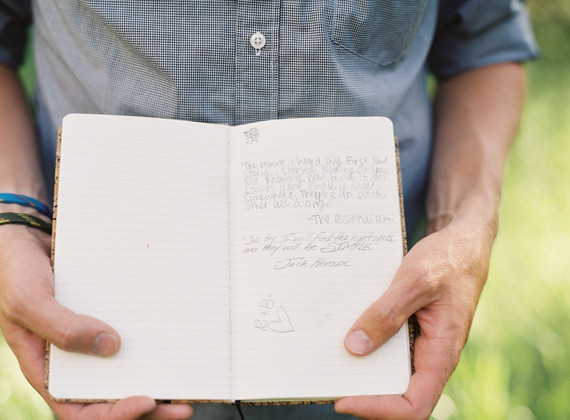 The minute i heard my first love
story, i started looking for you
not knowing how blind it was
Lovers don't finally meet
somewhere. They're in each
other all along.
-The
"One day I will find the right words
and they will be SIMPLE.
-Jack Kerouac
R+B